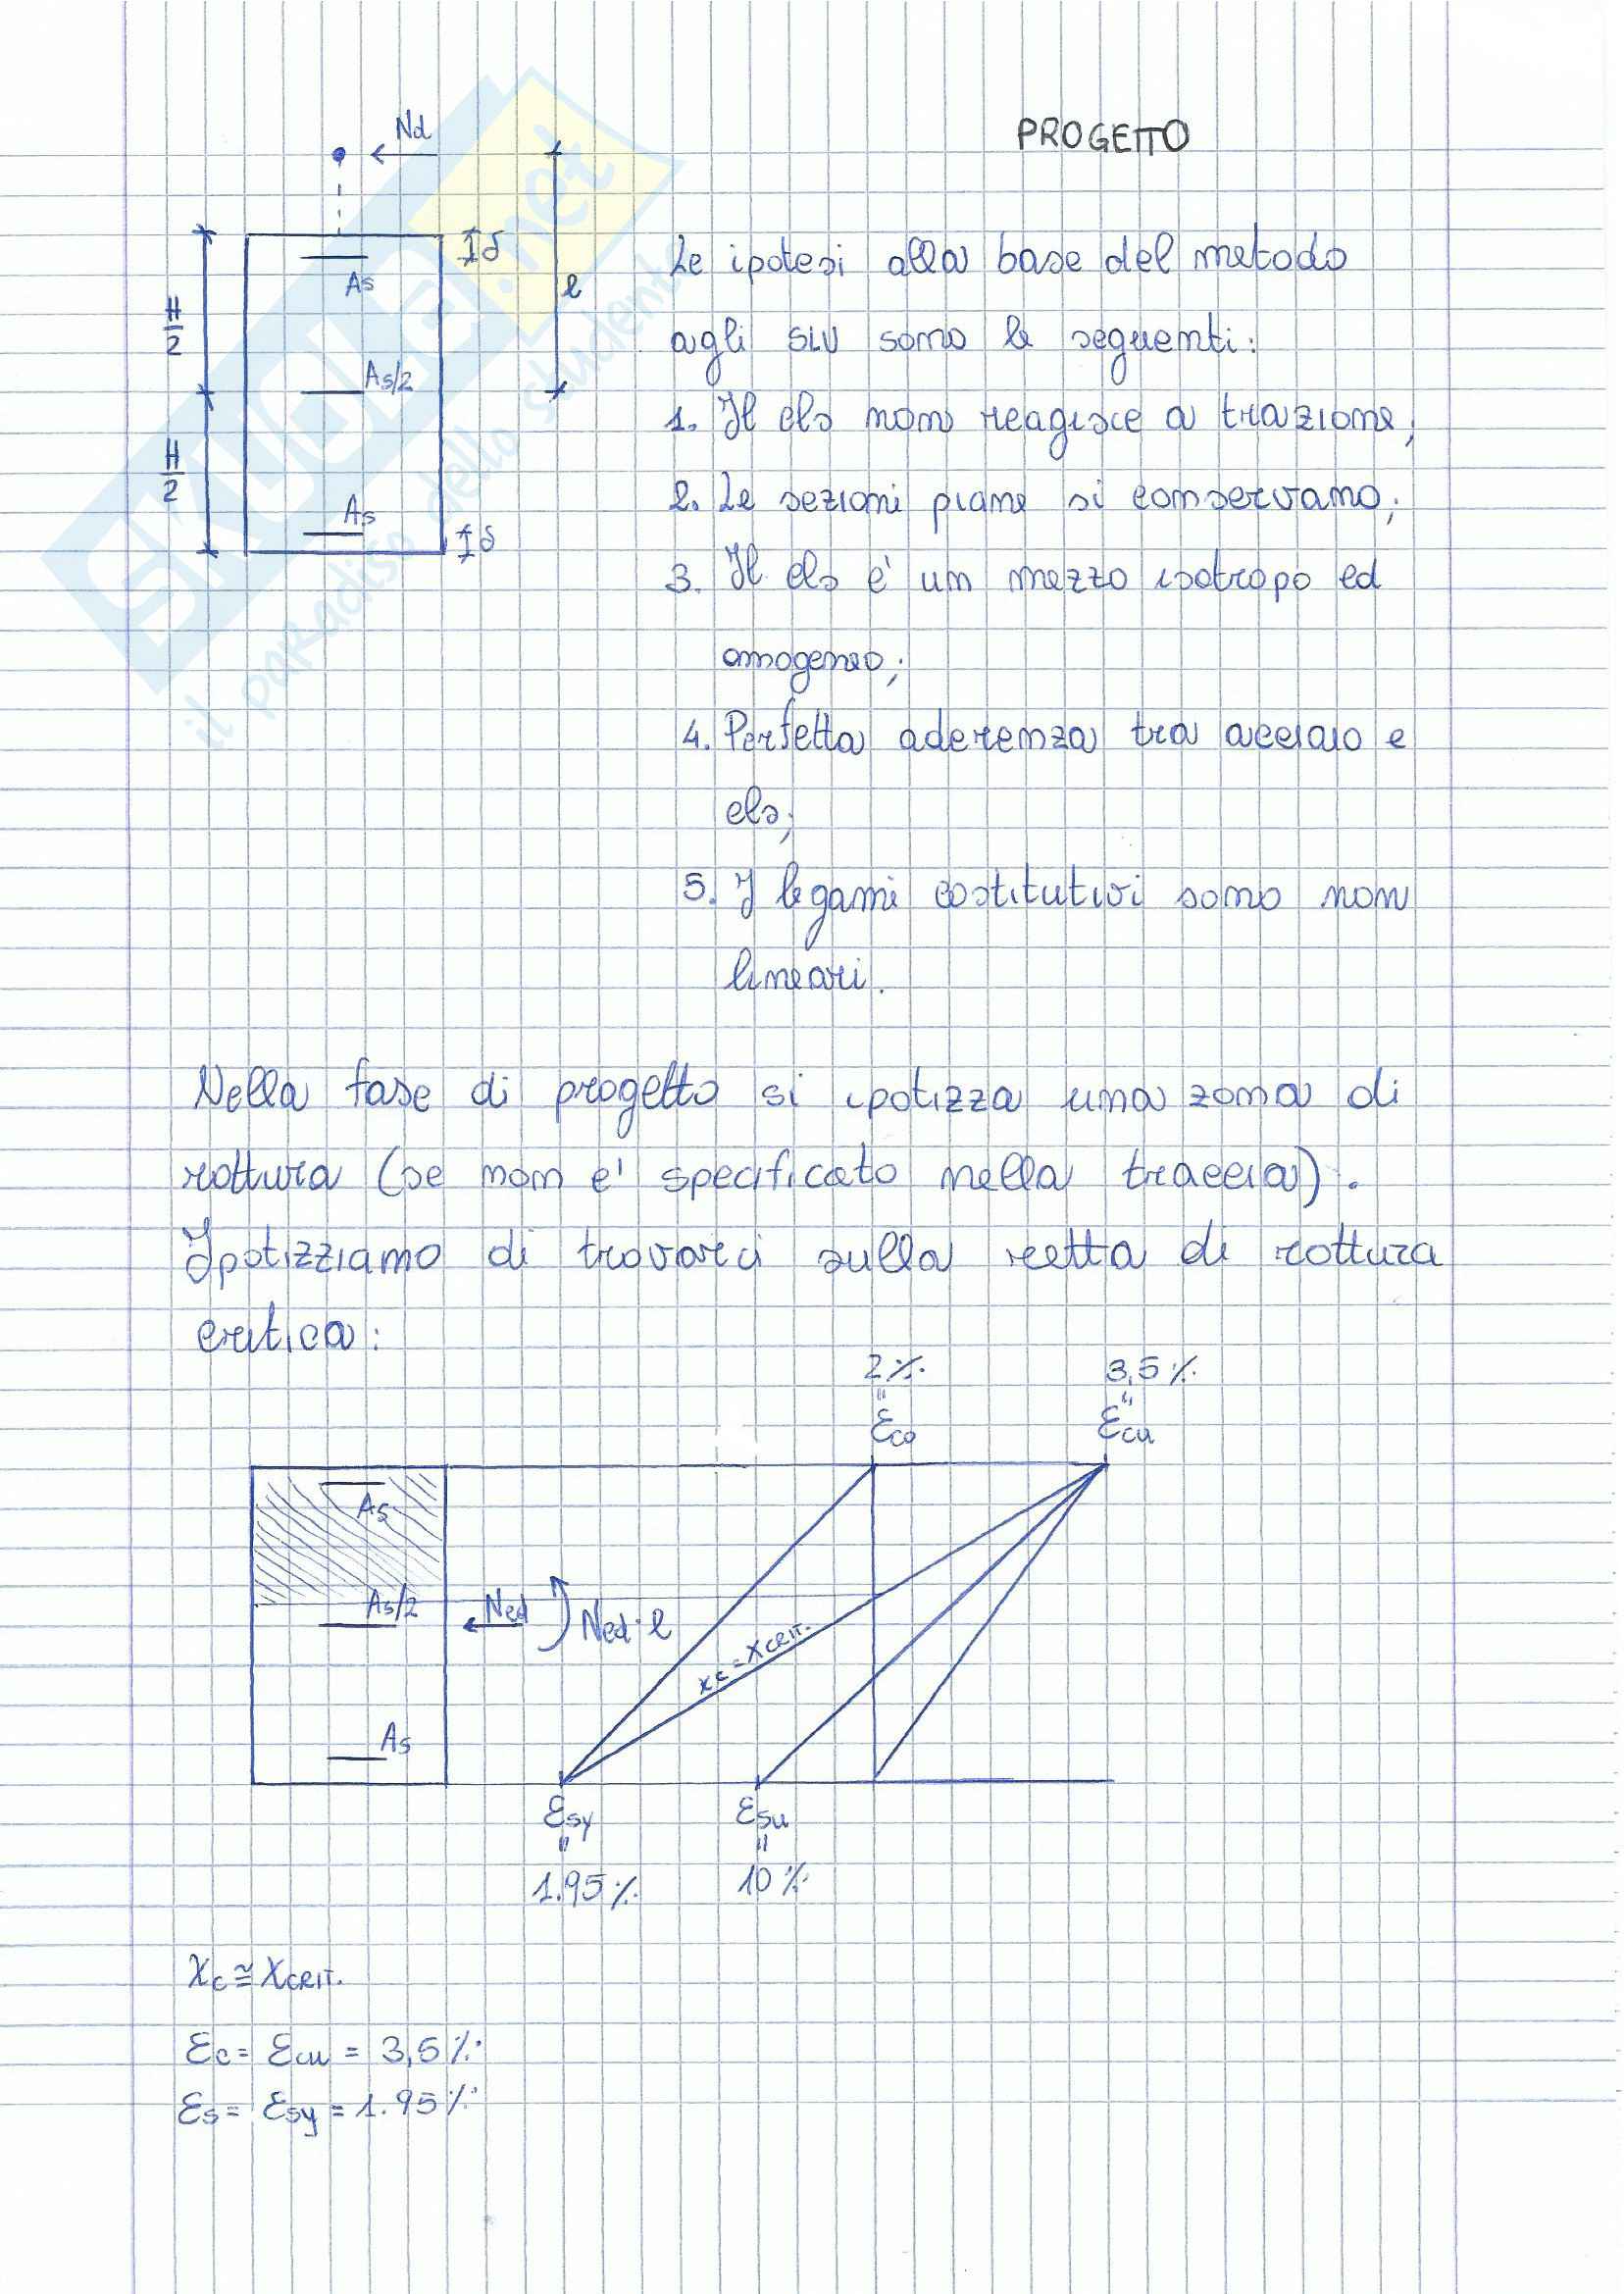 PROGETTO
Nd
Le ipotesi alla base del metodo
agli SLU sono le seguenti:
1. Il cls non reagisce a trazione;
2. Le sezioni piane si conservano;
3. Il cls e' un mezzo isotropo ed
omogeneo;
4. Perfetta aderenza tra acciaio e
cls;
5. I legami costitutivi sono non
lineari.
H/2
H/2
As
As/2
As
δ
δ
e
SKUOLA.net
il paradiso dello studente
Nella fase di progetto si ipotizza una zona di
rottura (se non e' specificato nella traccia).
Ipotizziamo di trovarci sulla retta di rottura
critica:
2‰
"
εco
3,5‰
"
εcu
As
As/2
As
Ned
Ned·e
xc=xCRIT.
εsy
"
1.95‰
εsu
"
10‰
xc≅xCRIT.
εc= εcu = 3,5‰
εs= εsy = 1.95‰